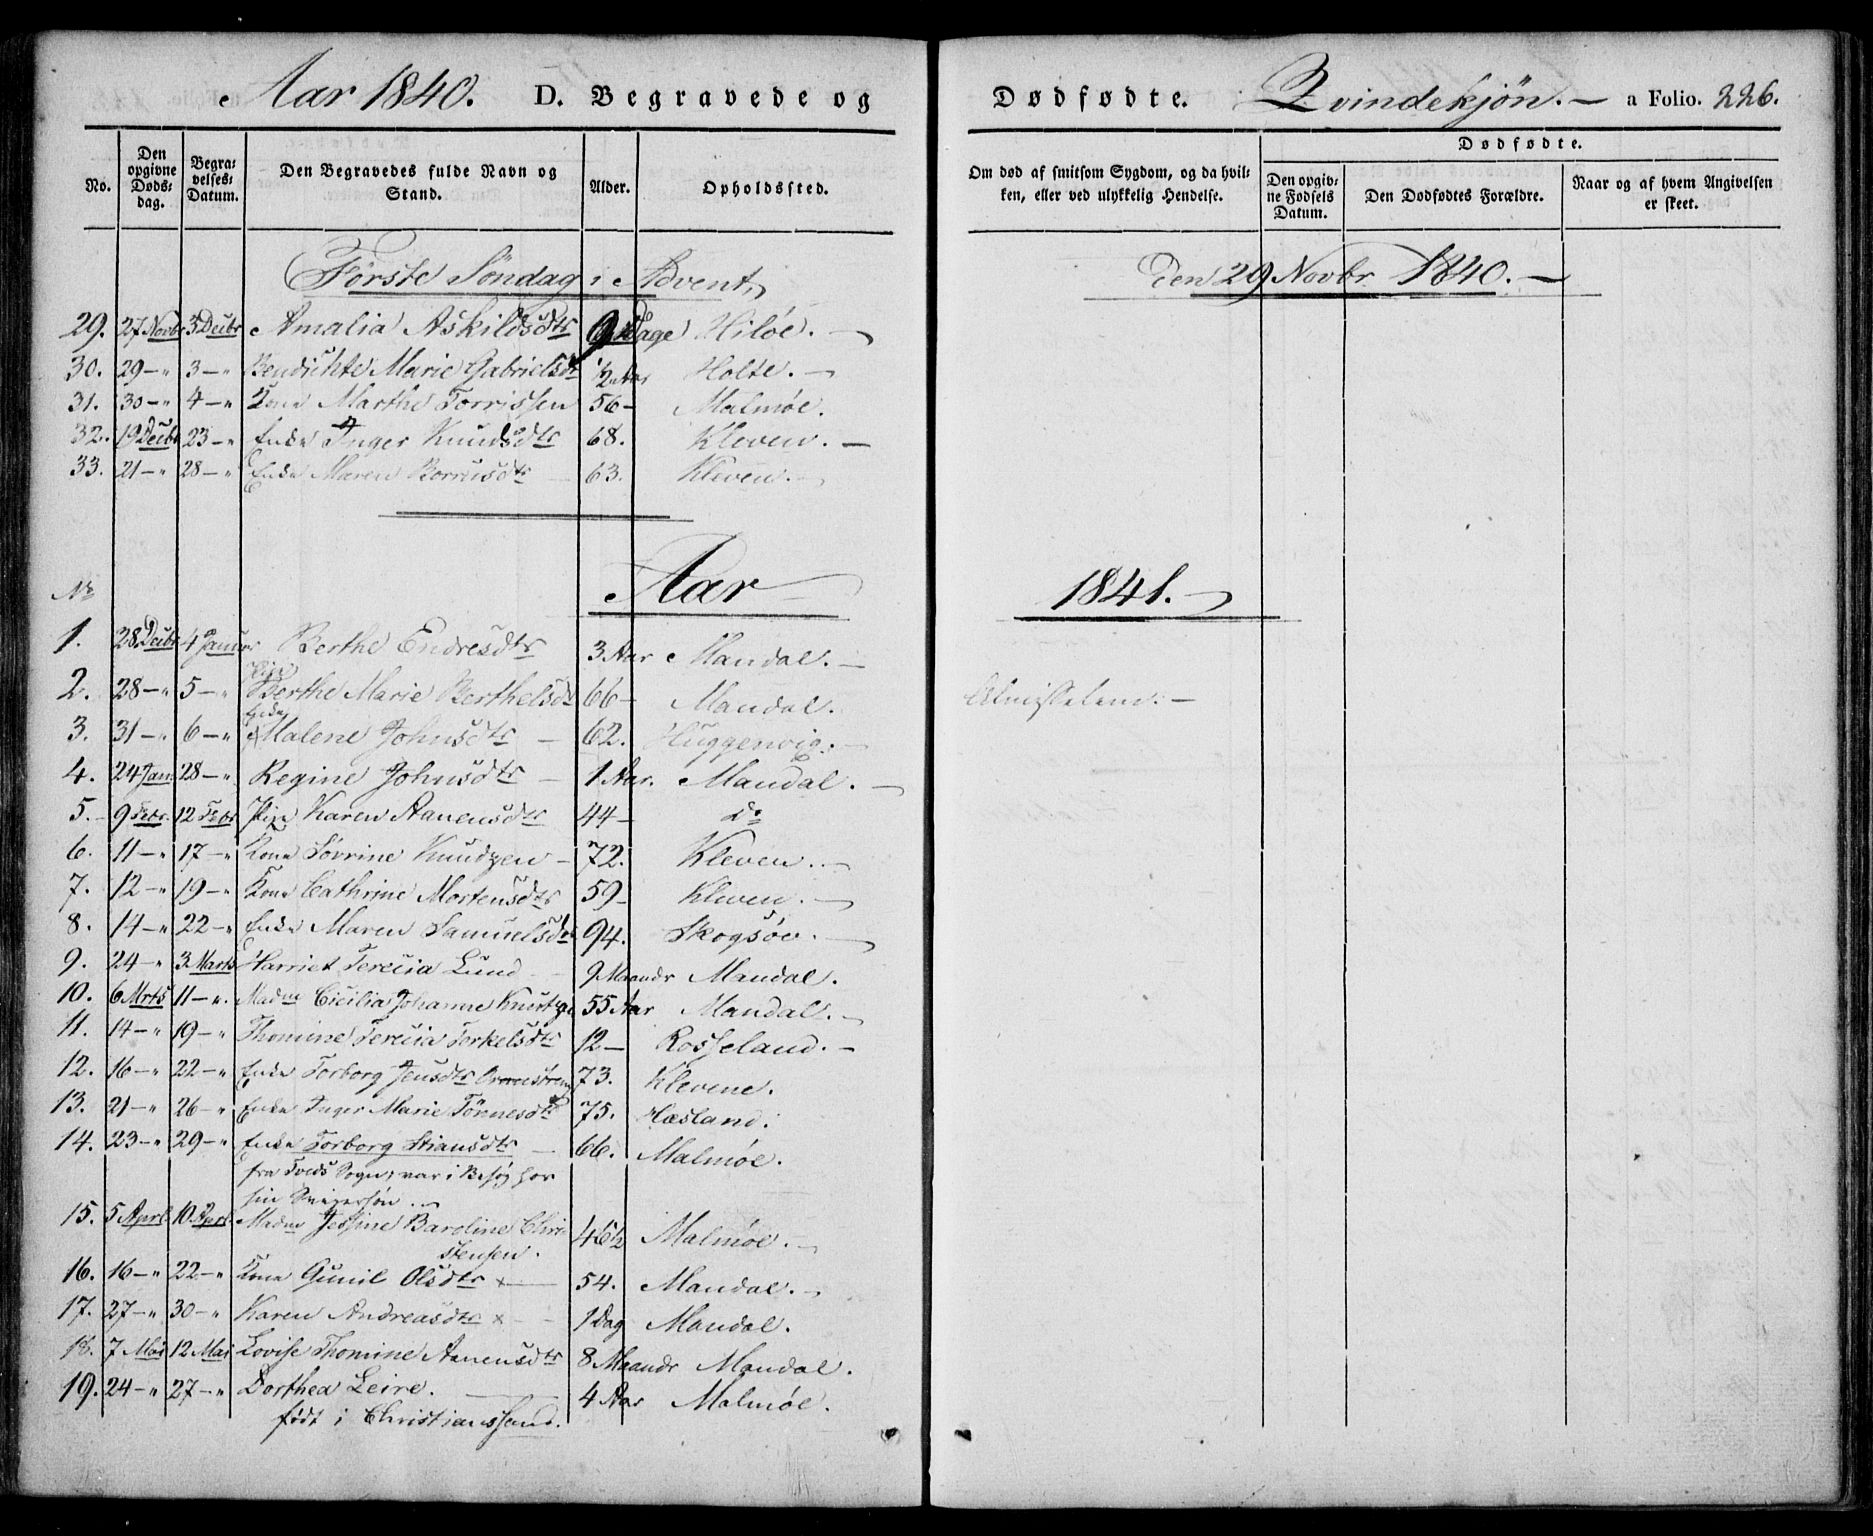 Aar 1840. D. Begravede og Dødfødte. Qvindekjøn. — a Folio. 226.
No. | Den opgivne Døds-dag. | Begravelses-Datum. | Den Begravedes fulde Navn og Stand. | Alder. | Opholdssted. | Om død af smitsom Sygdom, og da hvilken, eller ved ulykkelig Hendelse. | Dødfødte. | Den opgivne Fødsels Datum. | Den Dødfødtes Forældre. | Naar og af hvem Angivelsen er skeet.
Første Søndag i Advent, Den 29 Novbr 1840. —
29. 27 Novbr 3 Decbr Amalia Askildsdtr 9 Dage Hiløe. —
30. 29 — " 3 — " Bendichte Marie Gabrielsdtr 1/2 Aar Holte. —
31. 30 — " 4 — " Kone Marthe Torrissen 56 — Malmøe.
32. 19 Decbr 23 — " Enke Inger Knudsdtr 68. Kleven. —
33. 21 — " 28 — " Enke Maren Borrusdtr 63. Kleven. —
Aar 1841. —
No
1. 28 Decbr 4 Januar Berthe Endresdtr 3 Aar Mandal. —
2. 28 — " 5 — " Pige Berthe Marie Berthelsdtr 66 — Mandal. Almisselem. —
3. 31 — " 6 — " Enke Malene Johnsdtr — 62. Huggenvig. —
4. 24 Jan. 28 — " Regine Johnsdtr — 1 Aar. Mandal. —
5. 9 Febr. 12 Febr Pige Karen Aanensdtr 44 — do
6. 11 — " 17 — " Kone Sørrine Knudzen — 72. Kleven. —
7. 12 — " 19 — " Kone Cathrine Mortensdtr 59 — Kleven. —
8. 14 — " 22 — " Enke Maren Samuelsdtr 94. Skogsøe. —
9. 24 — " 3 Marts Harriet Terecia Lund 9 Maandr Mandal.
10. 6 Mrts 11 — ". Madme Cicilia Johanne 55 Aar Mandal. —
11. 14 — " 19 — " Thomine Terecia Torkelsdtr 12 — Rosseland. —
12. 16 — " 22 — " Enke Torborg Jensdtr 73. Klevene.
13. 21 — " 26 — " Enke Inger Marie Tønnesdtr 75. Hæsland.
14. 23 — " 29 — " Enke Torborg Stiansdtr — 66. Malmøe.
fra Tveds Sogn, var i Besøg hos
sin Svigersøn. —
15. 5 Aprl 10 Aprl Madme Jessine Baroline Chri-
stensen. 46 1/2 Malmøe. —
16. 16 — " 22 — " Kone Gunil Olsdtr x — 54. Mandal. —
17. 27 — " 30 — " Karen Andreasdtr x — 1 Dag Mandal.
18. 7 Mai 12 Mai Lovise Thomine Aanensdtr 8 Maandr Mandal.
19. 24 — " 27 — " Dorthea Leire. — 4 Aar Malmøe.
født i Christianssand.